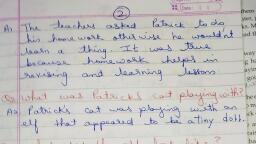 2
A) The teachers asked Patrick to do
his homework otherwise he wouldn't
learn a thing. It was true
because homework helps in
revising and learning lesson
Q) What was Patrick's cat playing with?
A) Patrick's cat was playing with an
elf that appeared to be a tiny doll.